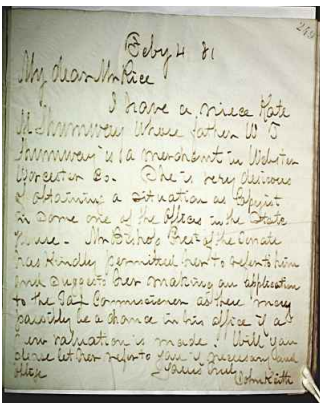 Feby 4 81
My dear Mr Rice
I have a niece Kate
M. Shumway whose father W J
Shumway is a merchant in Webster
Worcester Co. She is very desirous
of obtaining a situation as Copyist
in some one of the Offices in the State
House. Mr Bishop Prest of the Senate
has kindly permitted her to refer to him
and suggests her making an application
to the Tax Commissioner as there may
possibly be a chance in his office if a
new valuation is made! Will you
please let her refer to you if necessary and
oblige
Yours truly